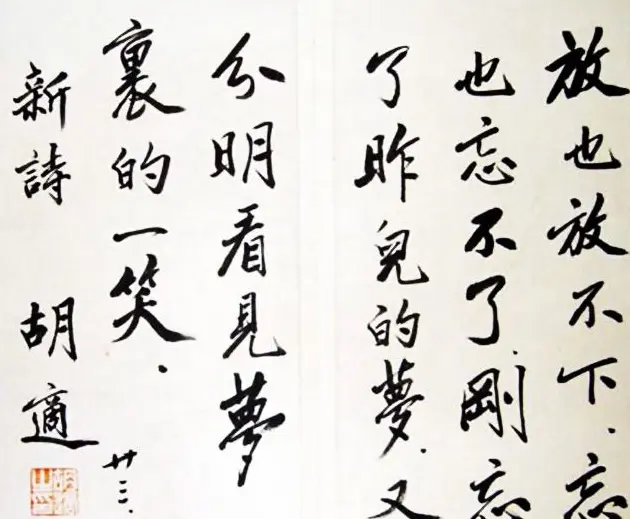 放也放不下.忘
也忘不了.剛忘
了昨兒的夢.又
分明看見夢
裏的一笑.
新詩 胡適